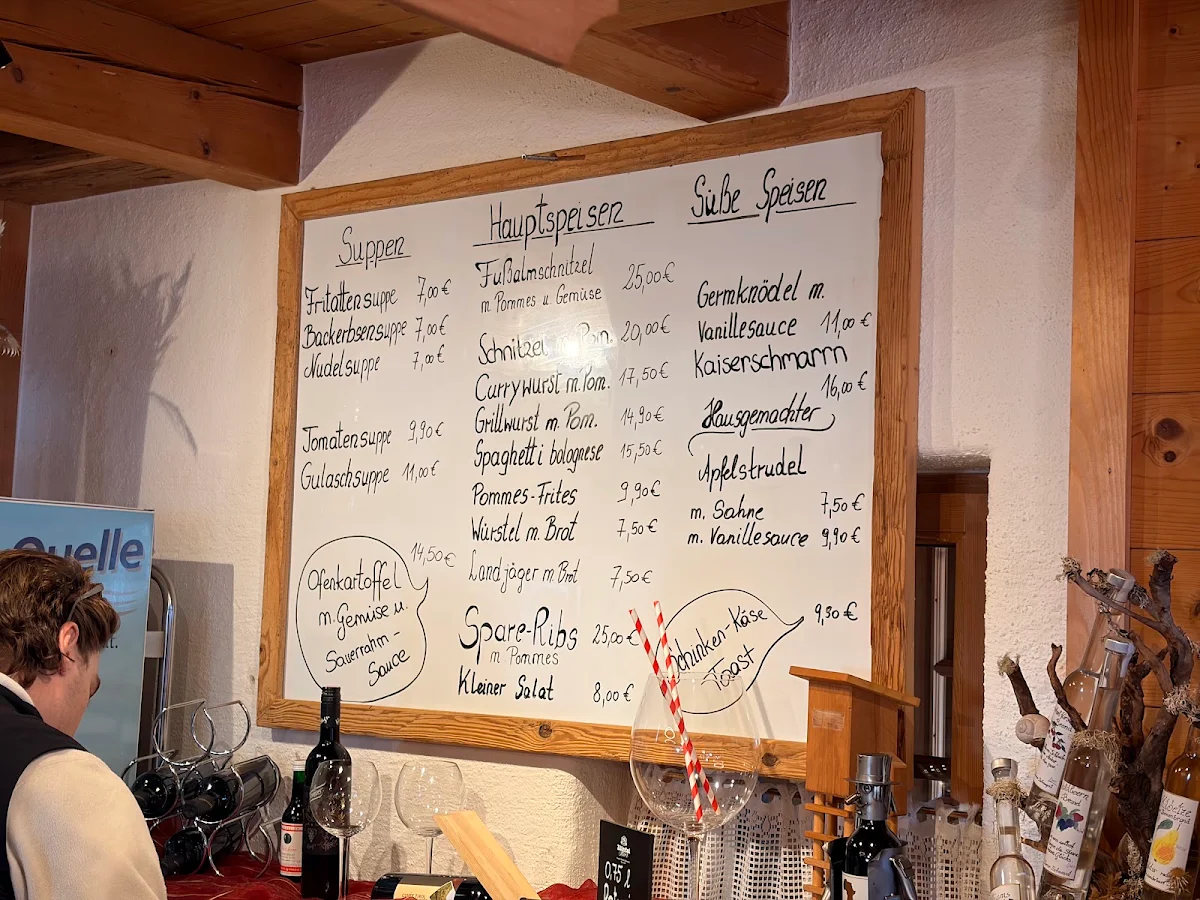 Suppen
Fritattensuppe 7,00€
Backerbsensuppe 7,00€
Nudelsuppe 7,00€
Tomatensuppe 9,90€
Gulaschsuppe 11,00€
14,50€
Ofenkartoffel
m. Gemüse u.
Sauerrahm-
Sauce
Hauptspeisen
Fußalmschnitzel 25,00€
m. Pommes u. Gemüse
Schnitzel m. Pom. 20,00€
Currywurst m. Pom. 17,50€
Grillwurst m. Pom. 14,90€
Spaghetti bolognese 15,50€
Pommes-Frites 9,90€
Würstel m. Brot 7,50€
Landjäger m. Brot 7,50€
Spare-Ribs 25,00€
m Pommes
Kleiner Salat 8,00€
Süße Speisen
Germknödel m.
Vanillesauce 11,00€
Kaiserschmarrn
16,00€
Hausgemachter
Apfelstrudel
m. Sahne 7,50€
m. Vanillesauce 9,90€
Schinken-Käse 9,30€
Toast
Quelle
0.75 l